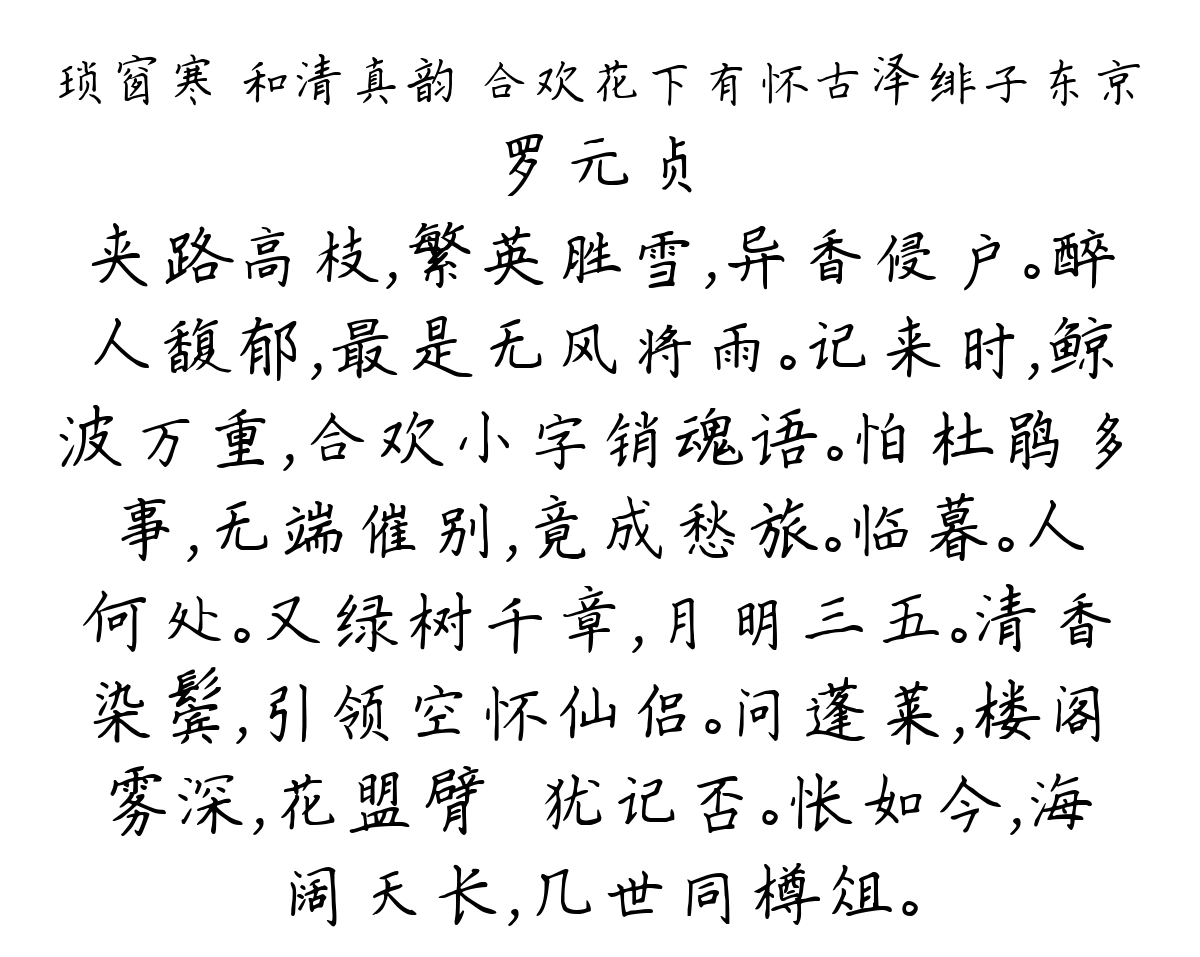 琐窗寒 和清真韵 合欢花下有怀古泽绯子东京
罗元贞
夹路高枝,繁英胜雪,异香侵户。醉
人馥郁,最是无风将雨。记来时,鲸
波万重,合欢小字销魂语。怕杜鹃多
事,无端催别,竟成愁旅。临暮。人
何处。又绿树千章,月明三五。清香
染鬓,引领空怀仙侣。问蓬莱,楼阁
雾深,花盟臂 犹记否。怅如今,海
阔天长,几世同樽俎。